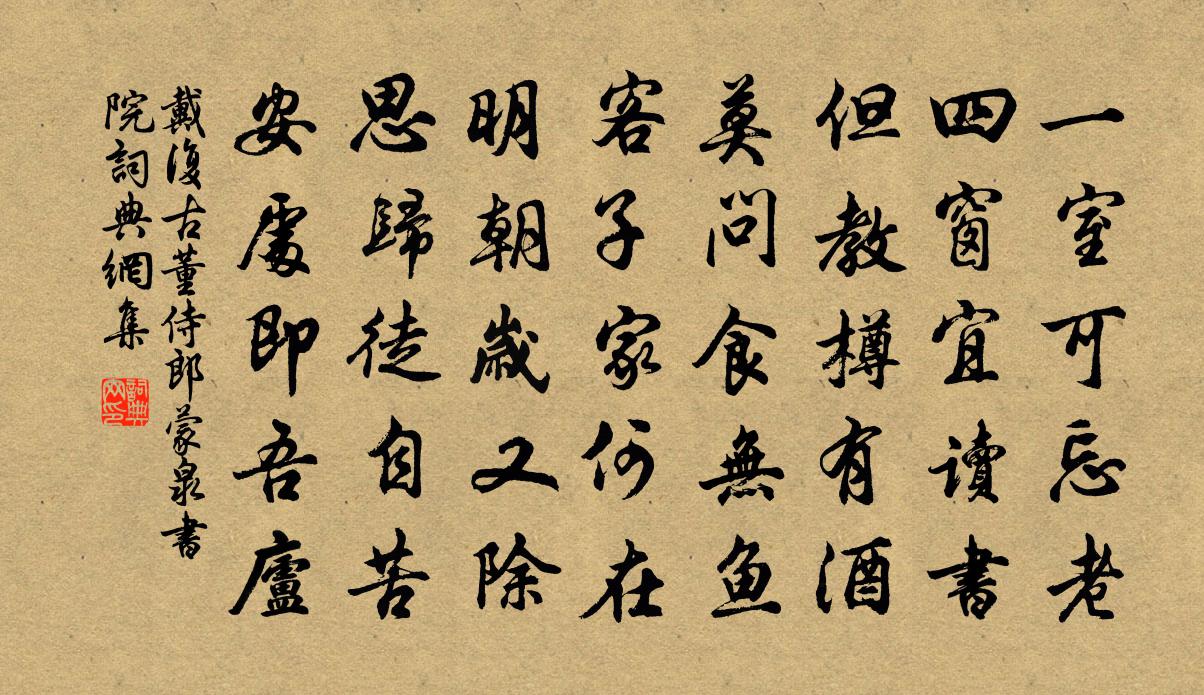 一室可忘老
四窗宜讀書
但教樽有酒
莫問食無魚
客子家何在
明朝歲又除
思歸徒自苦
安處即吾廬
戴復古董侍郎蒙泉書
院詞典網集
詞典
网印